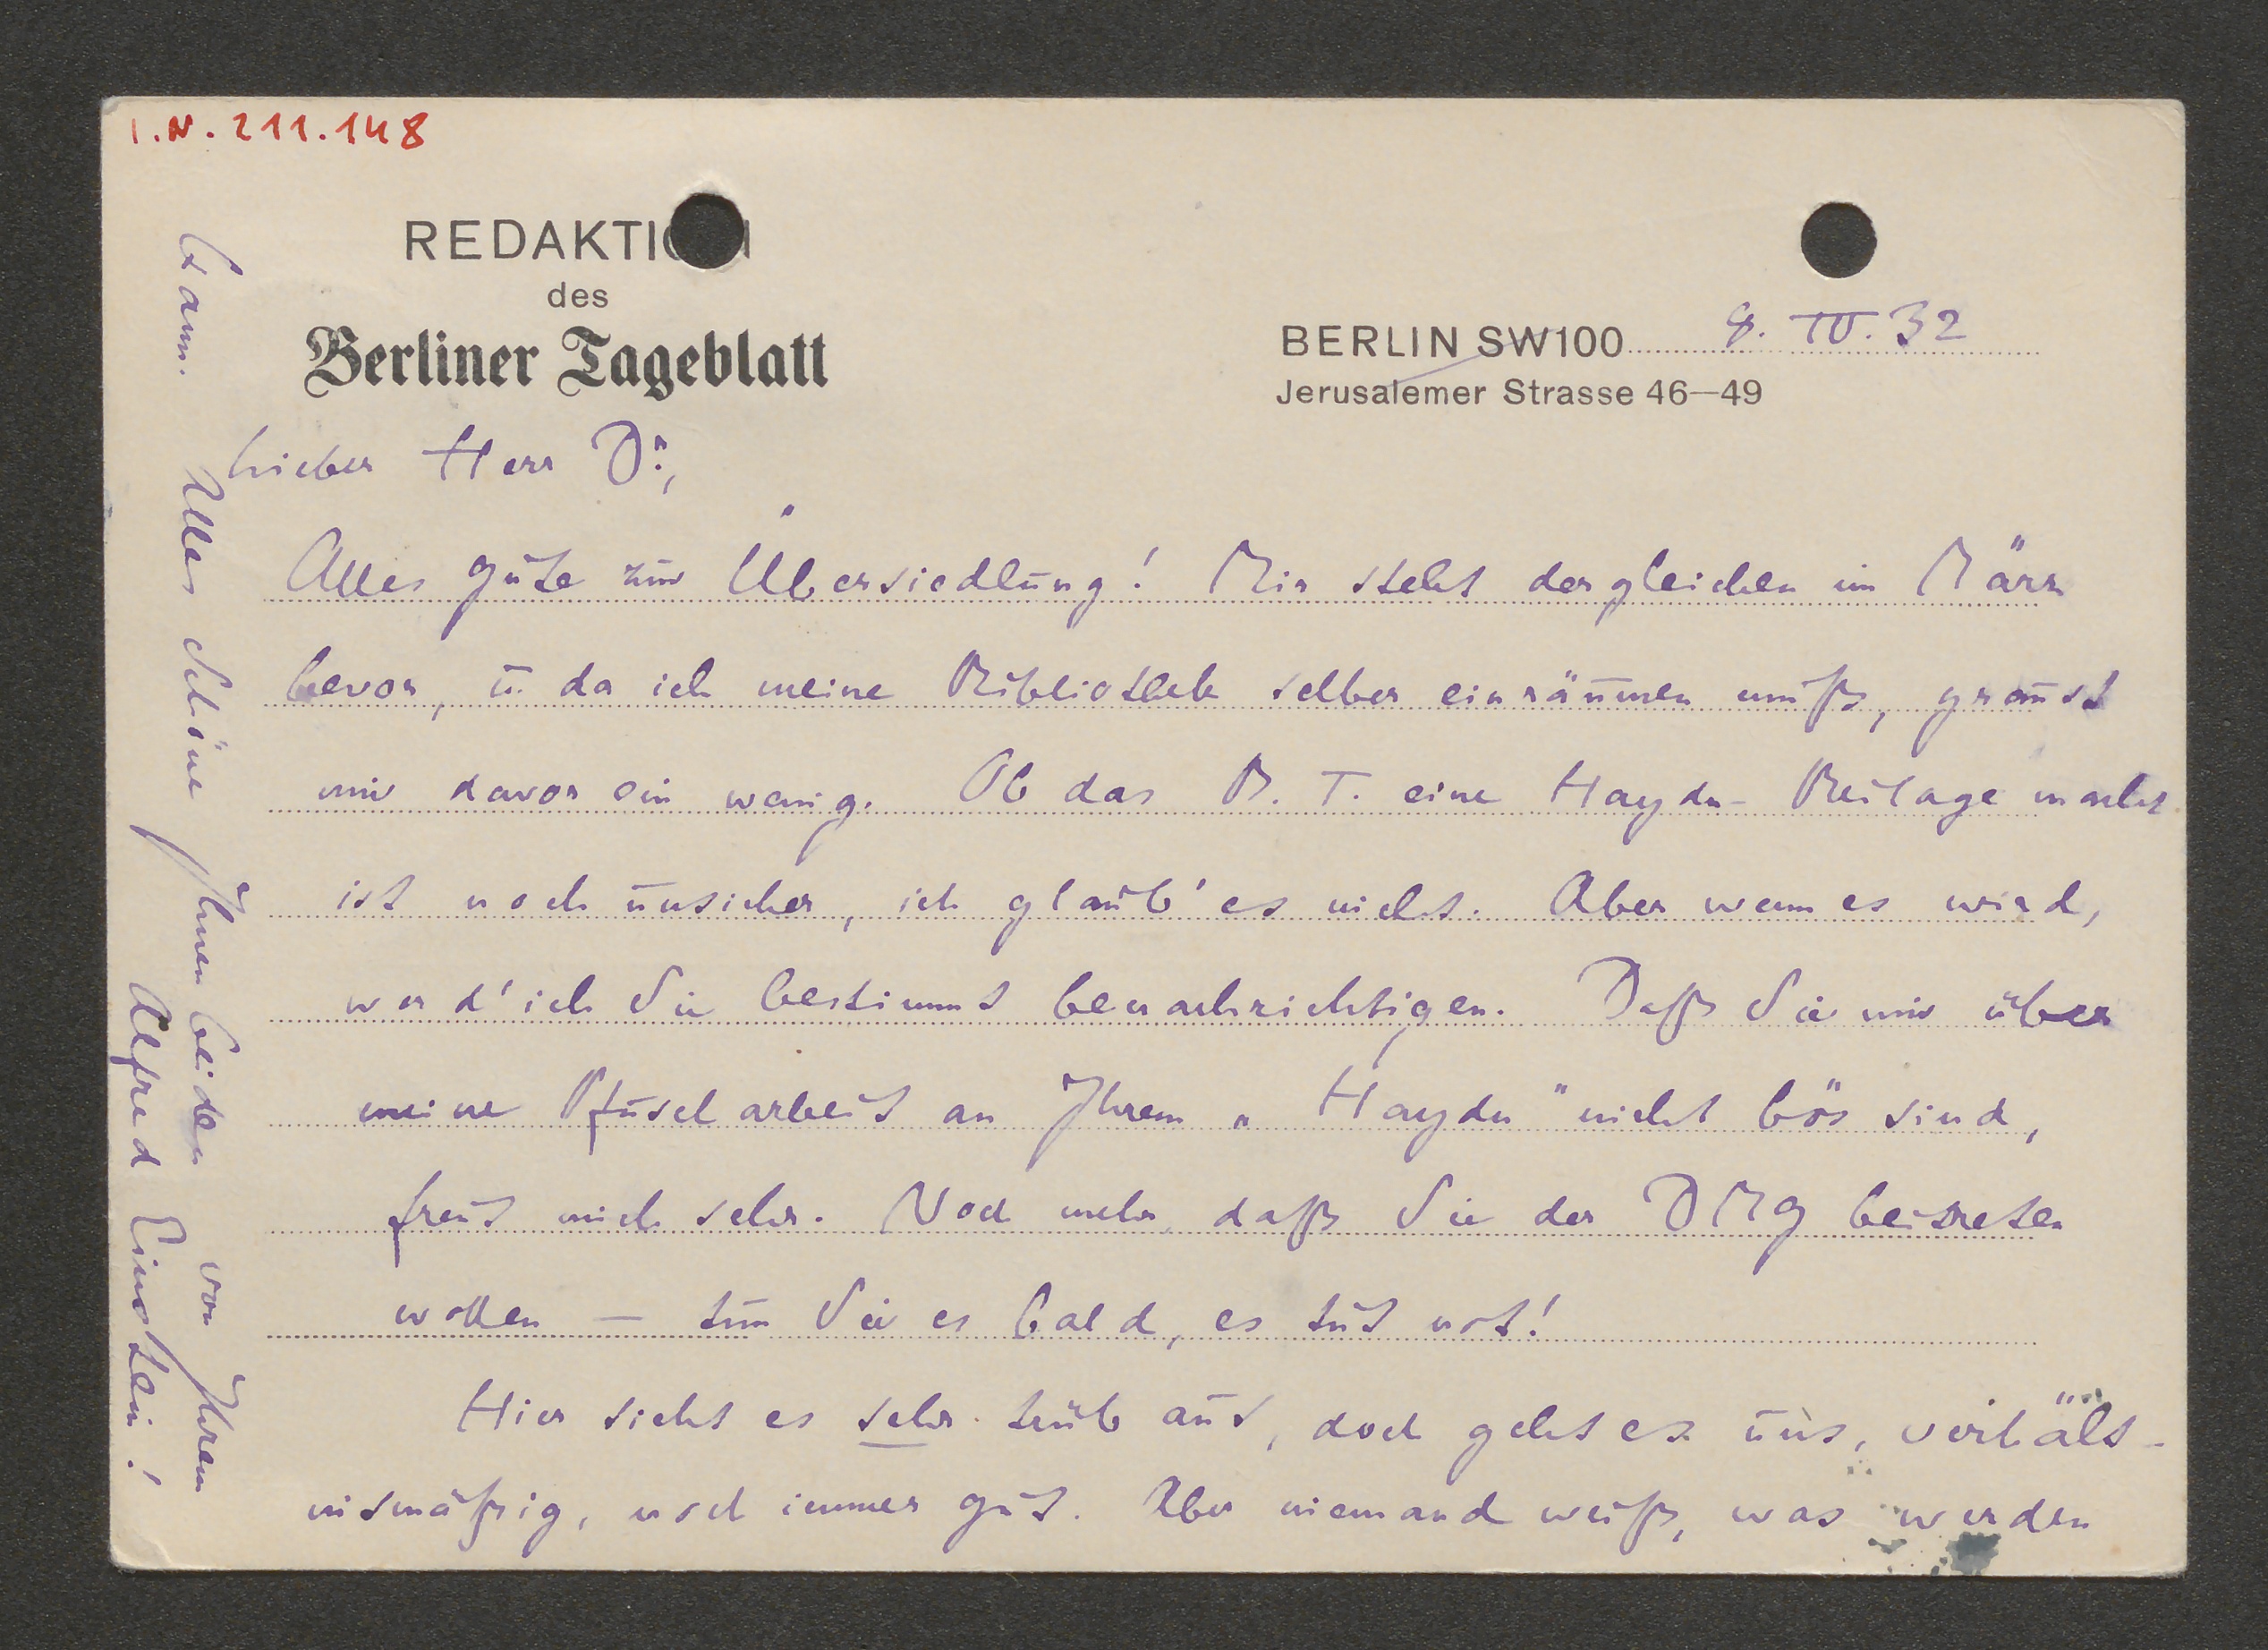 I.N. 211.148
REDAKTION
des
Berliner Tageblatt
BERLIN SW100
Jerusalemer Strasse 46—49
Lieber Herr Dr.,
Alles Gute zur Übersiedlung! Mir steht dergleichen im März
bevor, u. da ich meine Bibliothek selber einräumen muß, graust
mir davor ein wenig. Ob das B. T. eine Haydn-Beilage macht
ist noch unsicher, ich glaub' es nicht. Aber wenn es wird,
werd' ich Sie bestimmt benachrichtigen. Daß Sie mir über
meine Pfuscharbeit an Ihrem „Haydn" nicht bös sind,
freut mich sehr. Noch mehr, daß Sie der DMG beitreten
wollen — tun Sie es bald, es tut not!
Hier sieht es sehr trüb aus, doch geht es uns, verhält-
nismäßig, noch immer gut. Aber niemand weiß, was werden
kann. Alles Schöne Ihnen beiden von Ihrem
Alfred Einstein!